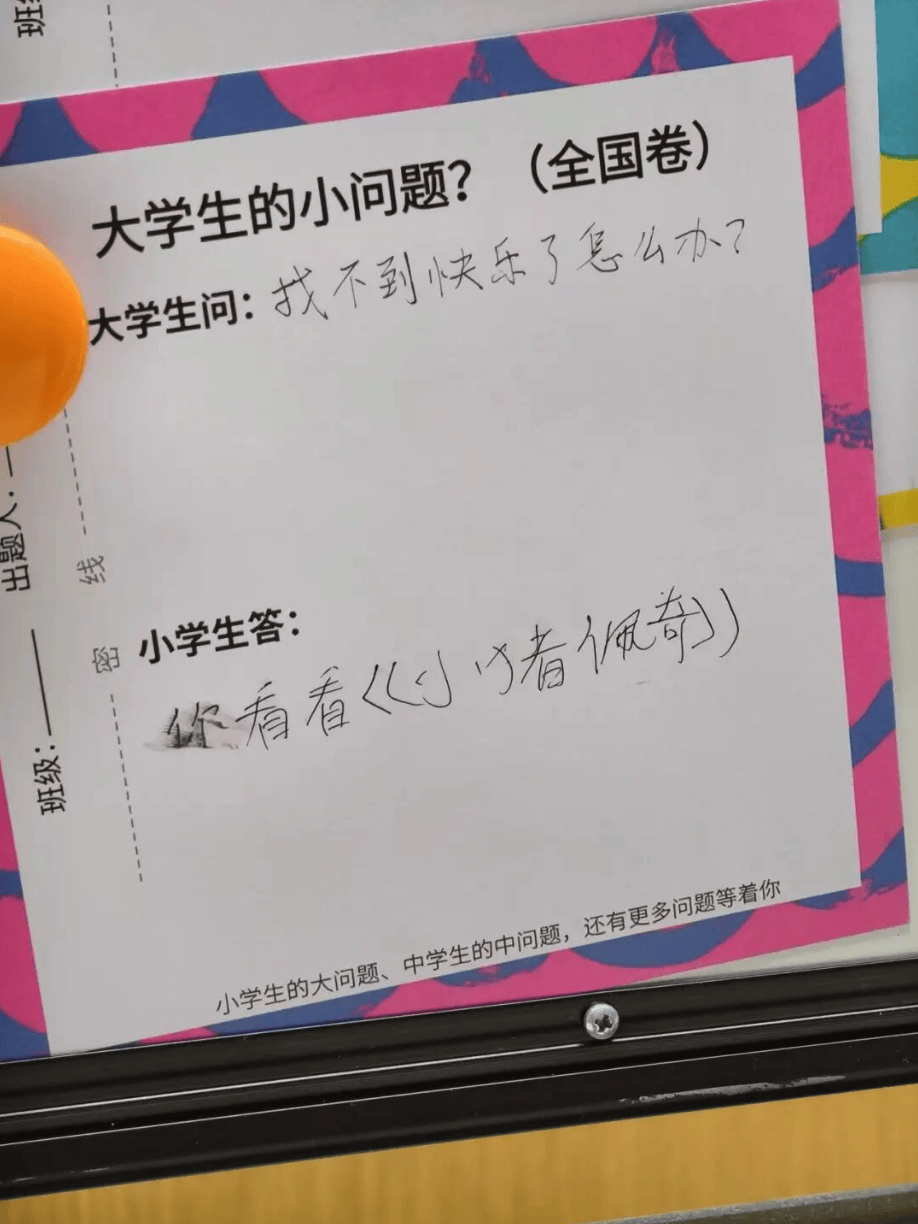 班级
大学生的小问题？（全国卷）
大学生问：找不到快乐了怎么办？
出题人：
线
密
班级：
小学生答：
你看看《小猪佩奇》
小学生的大问题、中学生的中问题，还有更多问题等着你